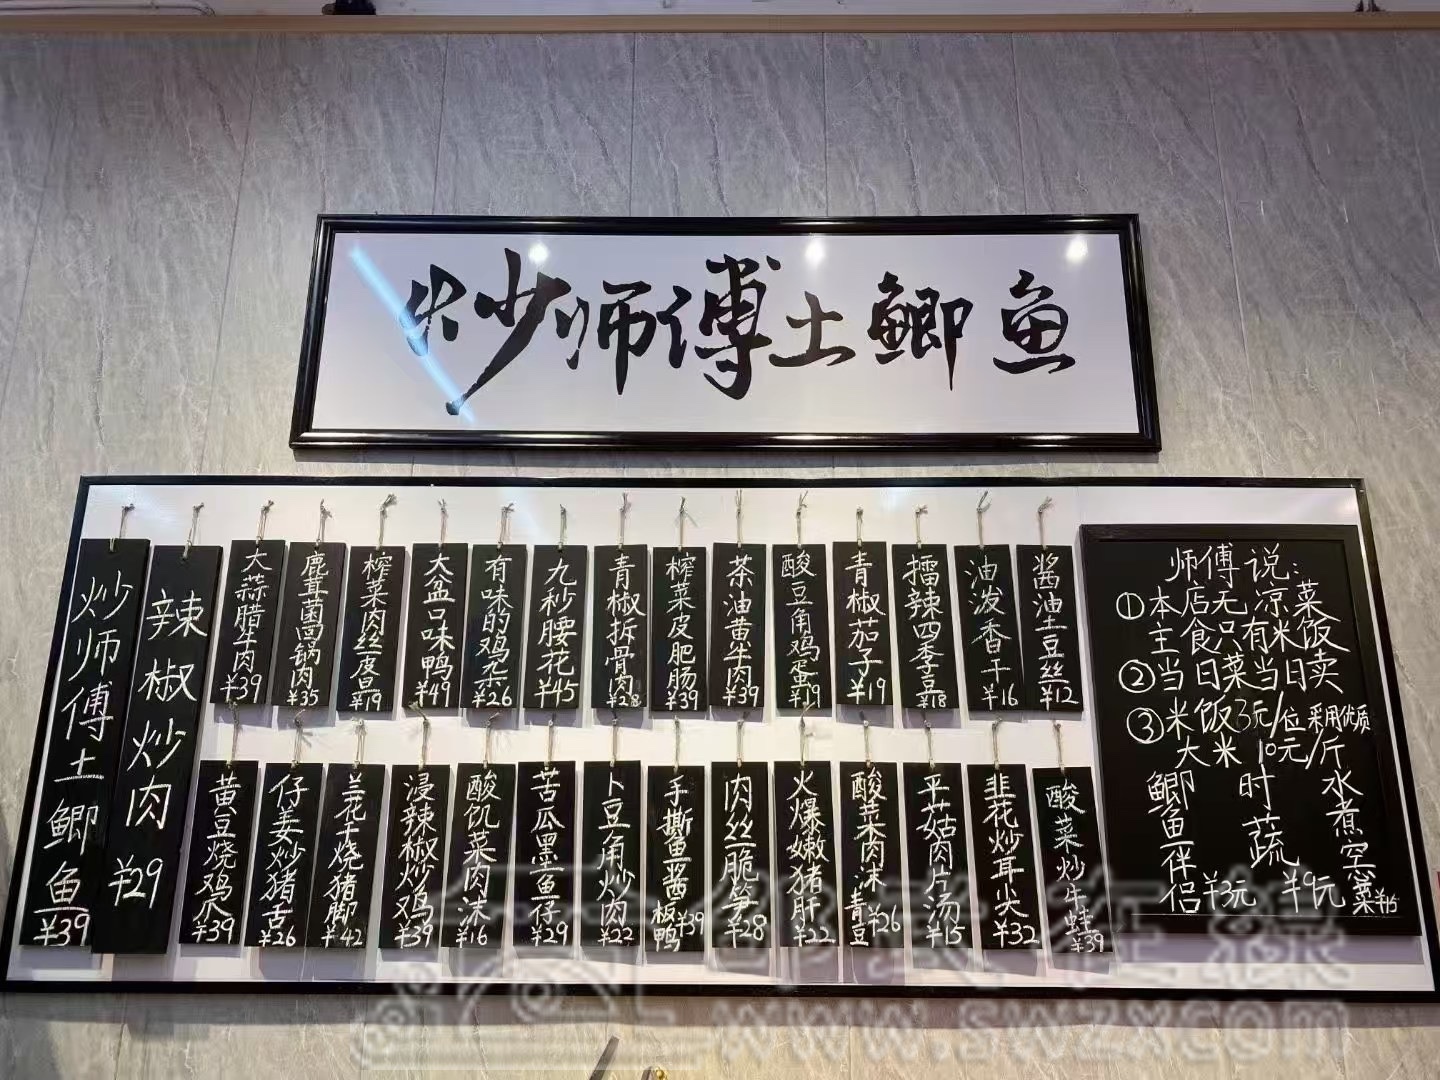 炒师傅土鲫鱼
炒师傅土鲫鱼 ¥39
辣椒炒肉 ¥29
大蒜腊牛肉 ¥39
鹿茸菌焖锅肉 ¥35
榨菜肉丝皮皂 ¥19
大盆口味鸭 ¥49
有味的鸡杂 ¥26
九秒腰花 ¥45
青椒拆骨肉 ¥28
榨菜皮肥肠 ¥39
茶油黄牛肉 ¥39
酸豆角鸡蛋 ¥19
青椒茄子 ¥19
擂辣四季豆 ¥18
油泼香干 ¥16
酱油土豆丝 ¥12
黄豆烧鸡爪 ¥39
仔姜炒猪舌 ¥26
兰花干烧猪脚 ¥42
浸辣椒炒鸡 ¥39
酸饥菜肉沫 ¥16
苦瓜墨鱼仔 ¥29
卜豆角炒肉 ¥22
手撕鱼酱板鸭 ¥39
肉丝脆笋 ¥28
火爆嫩猪肝 ¥22
酸菜肉沫青豆 ¥26
平菇肉片汤 ¥15
韭花炒耳尖 ¥32
酸菜炒牛蛙 ¥39
师傅说:
①本店无凉菜
主食只有米饭
②当日菜当日卖
③米饭3元/位采用优质
大米10元/斤
鲫鱼伴侣 ¥3元
时蔬 ¥9元
水煮窝菜 ¥15
www.swzx.com